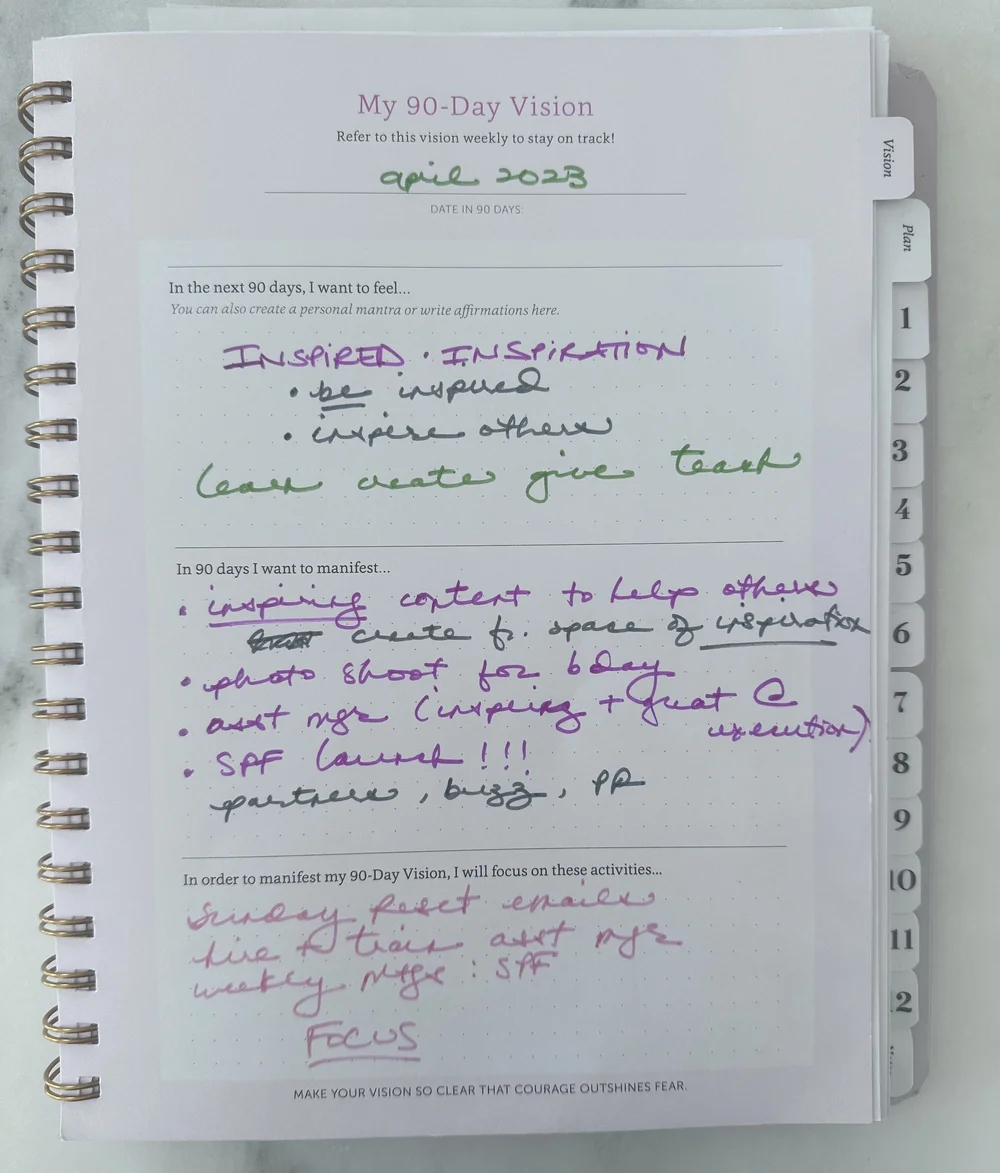 My 90-Day Vision
Refer to this vision weekly to stay on track!
april 2023
DATE IN 90 DAYS:
In the next 90 days, I want to feel...
You can also create a personal mantra or write affirmations here.
INSPIRED · INSPIRATION
• be inspired
• inspire others
learn create give teach
In 90 days I want to manifest...
• inspiring content to help others
create fr. space of inspiration
• photo shoot for bday
• asst mgr (inspiring + great @
execution)
• SPF launch!!!
partners, buzz, PR
In order to manifest my 90-Day Vision, I will focus on these activities...
Sunday Reset emails
hire + train asst mgr
weekly mtgs : SPF
FOCUS
MAKE YOUR VISION SO CLEAR THAT COURAGE OUTSHINES FEAR.
Vision
Plan
1
2
3
4
5
6
7
8
9
10
11
12